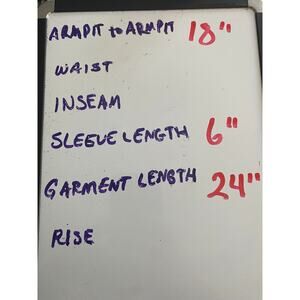 ARMPIT to ARMPIT 18"
WAIST
INSEAM
SLEEVE LENGTH 6"
GARMENT LENGTH 24"
RISE